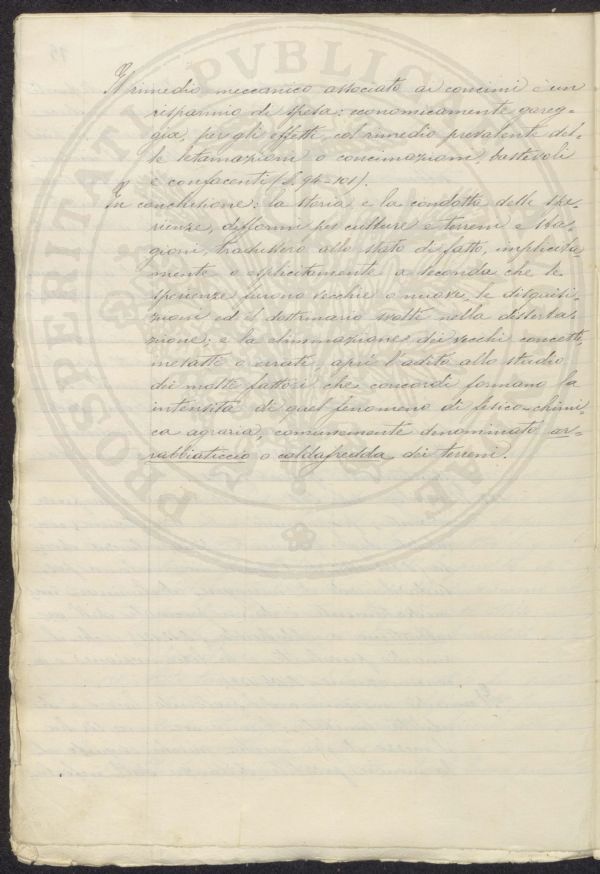 Il rimedio meccanico associato ai concimi è un
risparmio di spesa: economicamente gareg-
gia, per gli effetti, col rimedio prevalente del-
le letamazioni o concimazioni bastevoli
e confacenti (§. 94-101).
In conclusione: la storia e la condotta delle spe-
rienze, difformi per culture e terreni e sta-
gioni, tradussero allo stato di fatto, implicita-
mente o esplicitamente a seconda che le
sperienze furono vecchie o nuove, le disquisi-
zioni ed il dottrinario svolti nella disserta-
zione; e la eliminazione dei vecchi concetti,
inesatti o errati, aprì l'adito allo studio
dei molti fattori che concordi formano la
intensità di quel fenomeno di fisico-chimi
ca agraria, comunemente denominato ar-
rabbiaticcio o caldafredda dei terreni.
PROSPERITATI PVBLICAE